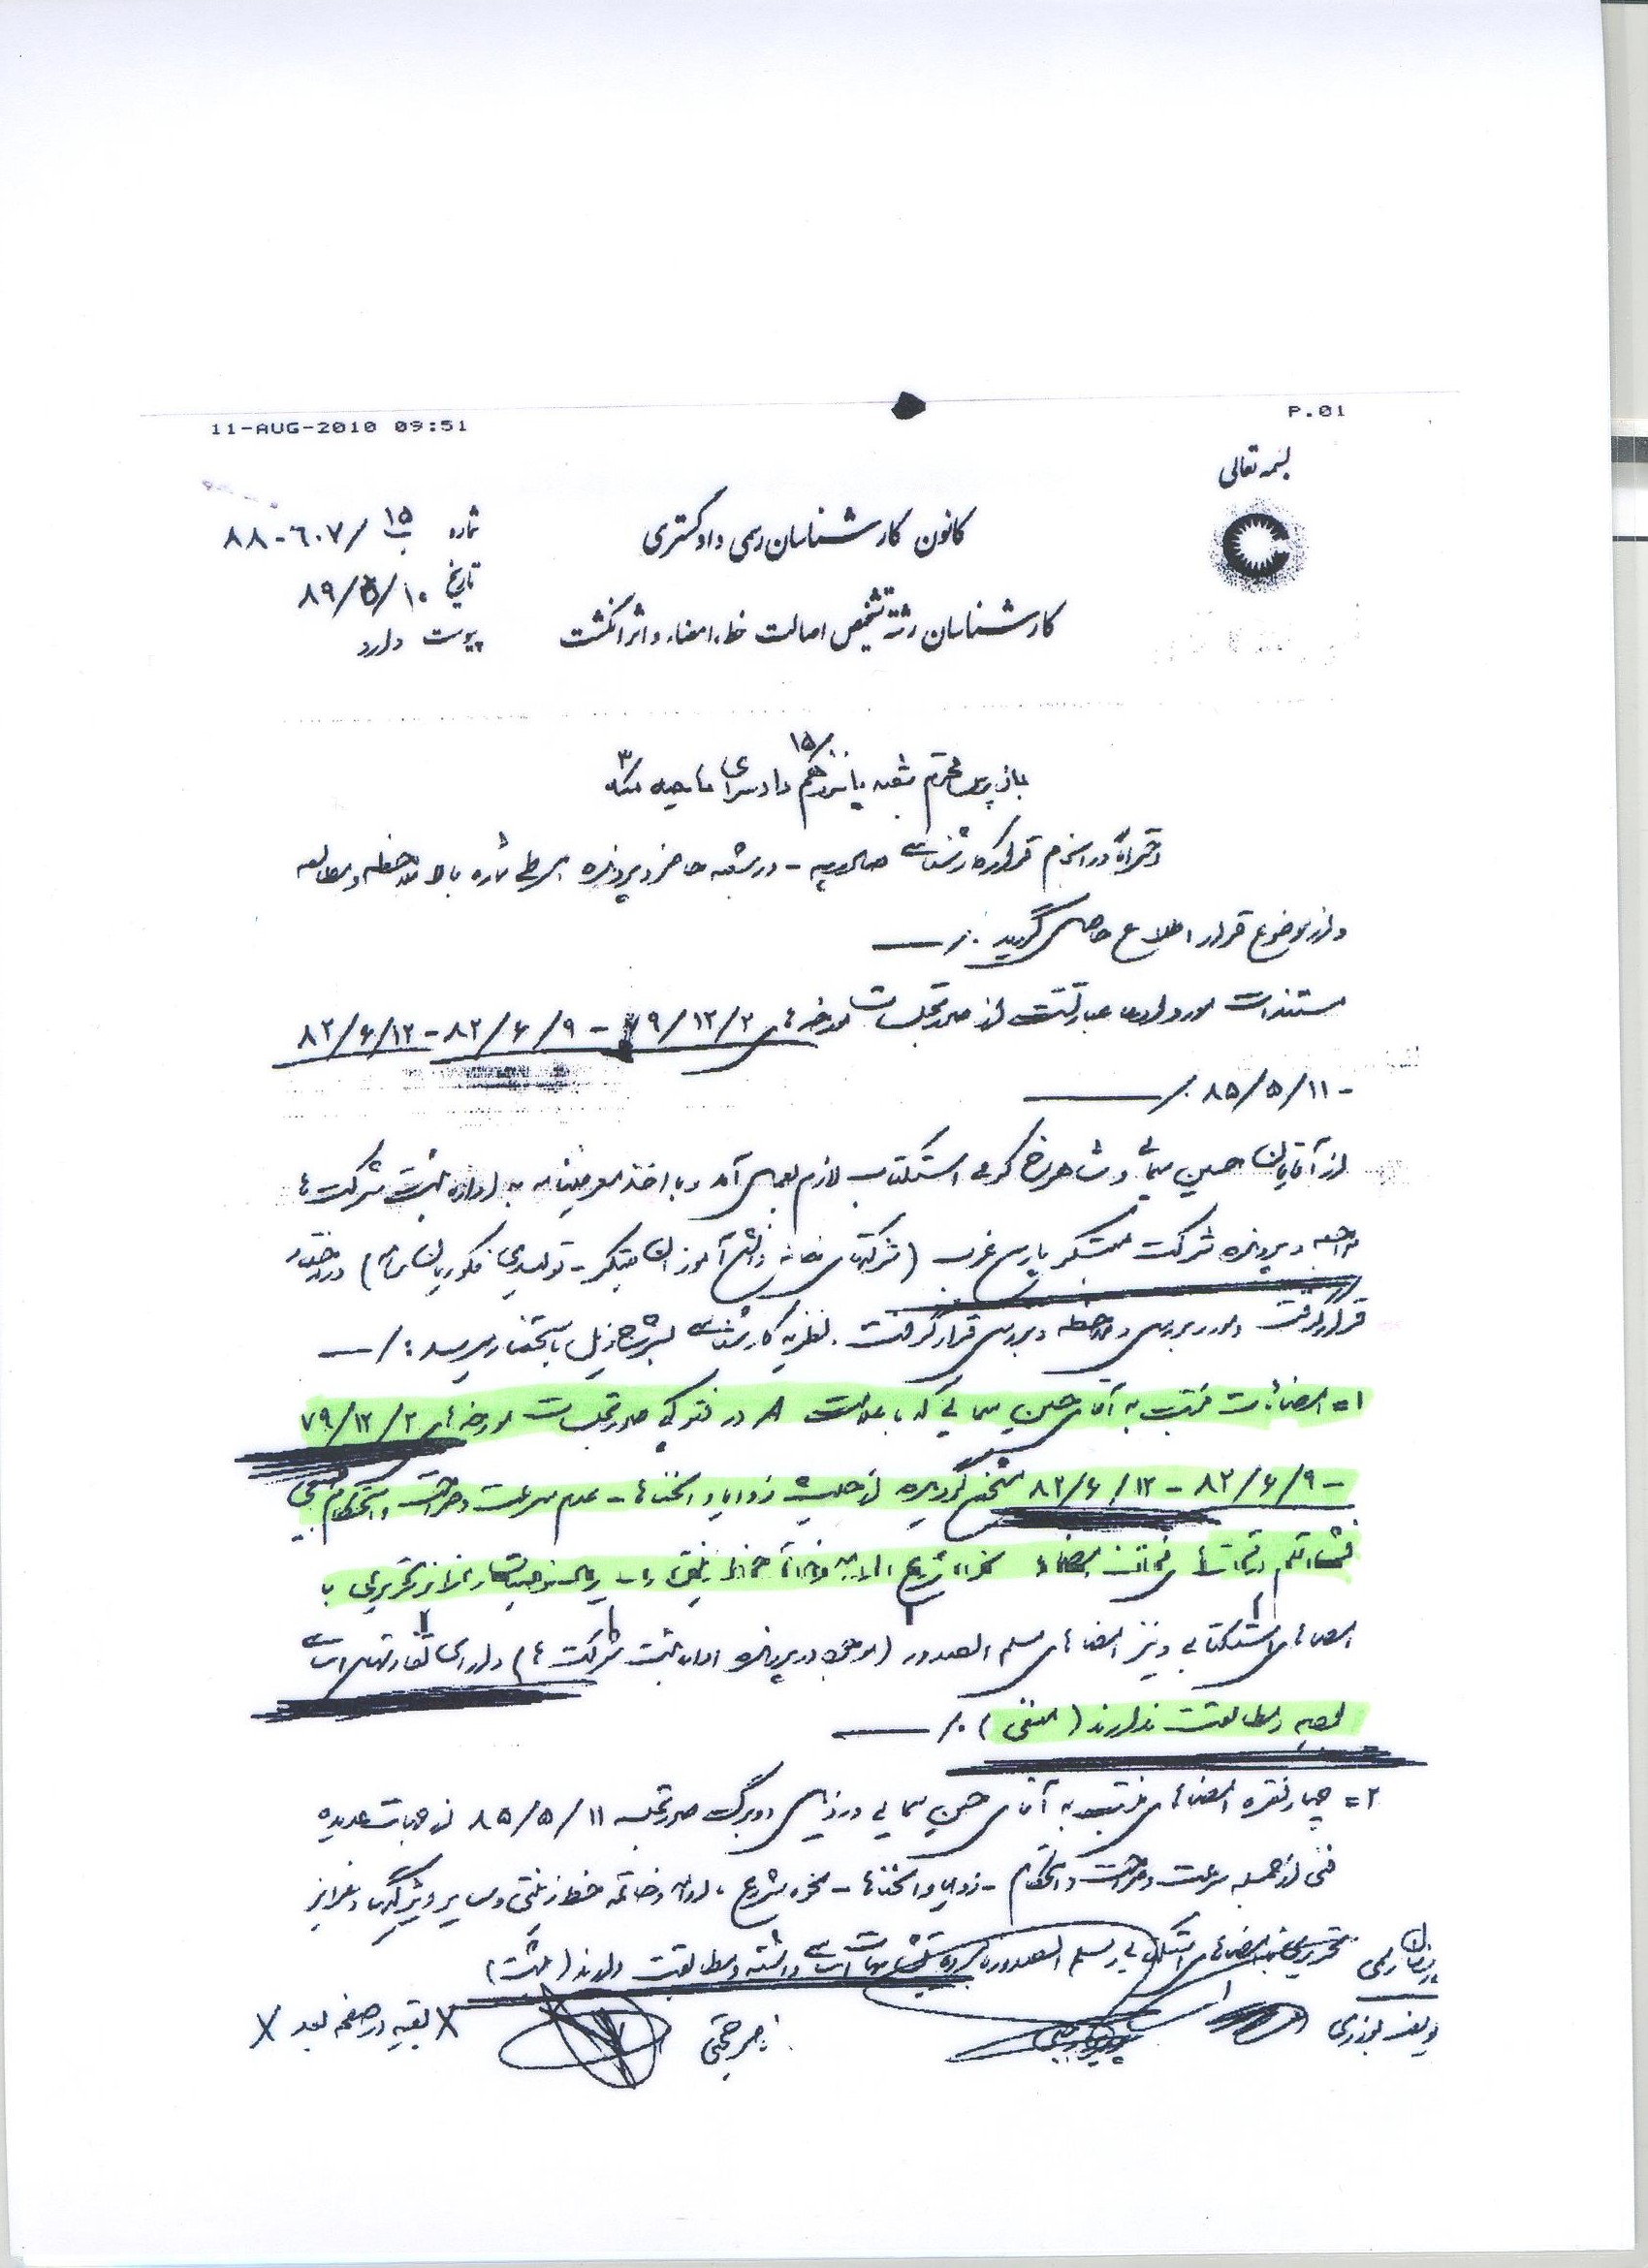 11-AUG-2010 09:51
P.01
بسمه تعالی
کانون کارشناسان رسمی دادگستری
کارشناسان رشته تشخیص اصالت خط، امضاء و اثر انگشت
شماره ۸۸-۶۰۷/۱۵ ب
تاریخ ۸۹/۵/۱۰
پیوست دارد
۱۵/
بازپرس محترم شعبه پانزدهم دادسرای ناحیه ۳
احتراماً در انجام قرار کارشناسی صادره - در شعبه حاضر و پرونده شماره بالا ملاحظه و مطالعه
و از موضوع قرار اطلاع حاصل گردید ./
مستندات مورد ادعا عبارتست از صورتجلسات مورخه های ۷۹/۱۲/۲ - ۸۲/۶/۹ - ۸۲/۶/۱۲
- ۸۵/۵/۱۱ ./
از آقایان حسین سمائی و شاهرخ کرمی استکتاب لازم بعمل آمد و با اخذ معرفینامه به اداره ثبت شرکت ها
مراجعه و پرونده شرکت مبتکر پارس غرب (شرکتهای دانش آموزان مبتکر - تولیدی) در اختیار
قرار گرفت و مورد بررسی و ملاحظه و بررسی قرار گرفت. نظریه کارشناسی بشرح ذیل باستحضار میرسد : /
۱= امضاءات منتسب به آقای حسین سمائی که با علامت A در فتوکپی صورتجلسات مورخه های ۷۹/۱۲/۲
- ۸۲/۶/۹ - ۸۲/۶/۱۲ مشخص گردیده از حیث زوایا و انحناها - عدم سرعت و حرکت و استحکام طبیعی
فشار قلم امضاء نحوه شروع ادامه و خاتمه خط و سایر خصوصیات و غرایز تحریری با
امضاهای استکتابی و نیز امضاهای مسلم الصدور (موجود در پرونده اداره ثبت شرکت ها) دارای تفاوتهای اساسی
بوده و مطابقت ندارند (منفی) ./
۲= چهار فقره امضاهای منتسب به آقای حسین سمائی در ذیل دو برگ صورتجلسه ۸۵/۵/۱۱ از جهات عدیده
فنی از جمله سرعت و حرکت و استحکام - زوایا و انحناها - نحوه شروع، ادامه و خاتمه خط و سایر ویژگیها و غرایز
تحریری با امضاهای استکتابی و مسلم الصدور نامبرده تشابهات اساسی داشته و مطابقت دارند (مثبت)
X بقیه در صفحه بعد X